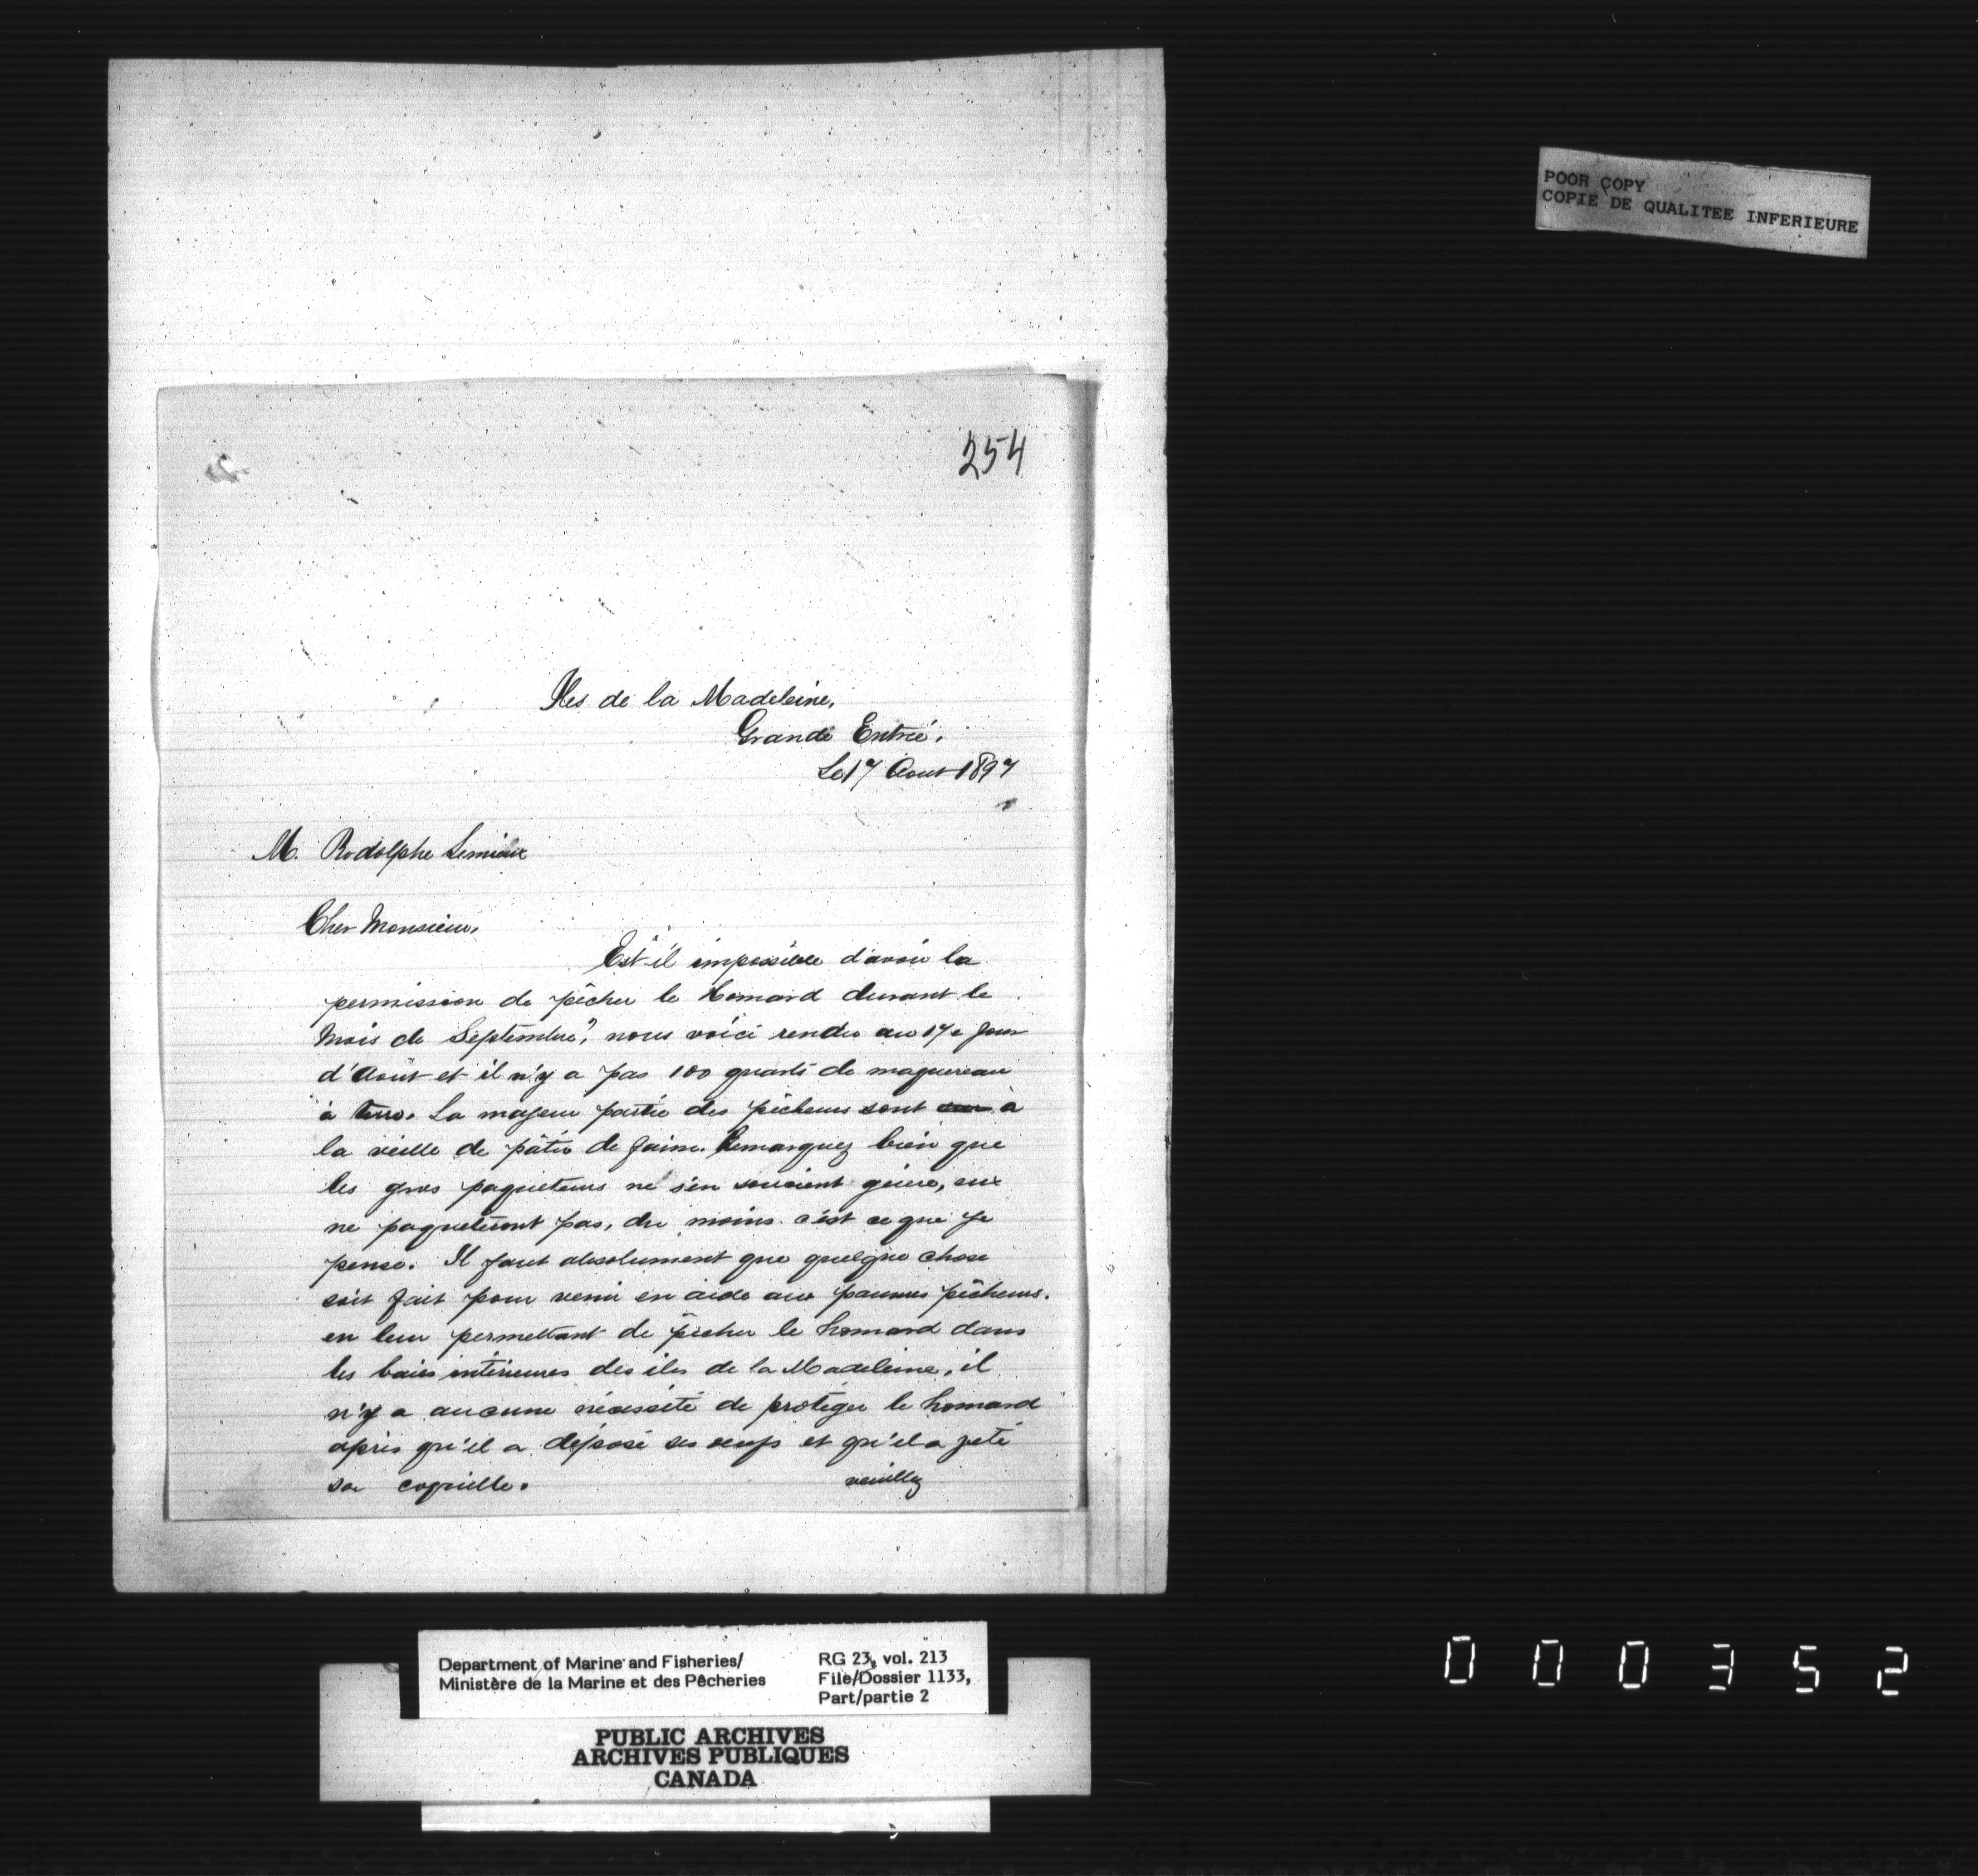 POOR COPY
COPIE DE QUALITEE INFERIEURE
254
Iles de la Madeleine,
Grande Entrée,
Le 17 Aout 1897
M. Rodolphe Lemieux
Cher Monsieur,
Est-il impossible d'avoir la
permission de pêcher le homard durant le
mois de Septembre? nous voici rendu au 17e jour
d'Août et il n'y a pas 100 quarts de maquereau
à terre. La majeur partie des pêcheurs sont à
la veille de pâtir de faim. Remarquez bien que
les gros paqueteurs ne s'en soucient guère, eux
ne paqueteront pas, du moins c'est ce que je
pense. Il faut absolument que quelque chose
soit fait pour venir en aide aux pauvres pêcheurs.
en leur permettant de pêcher le homard dans
les baies intérieures des îles de la Madeleine, il
n'y a aucune nécessité de protéger le homard
après qu'il a déposé ses oeufs et qu'il a jeté
sa coquille.
veuillez
Department of Marine and Fisheries/
Ministère de la Marine et des Pêcheries
RG 23, vol. 213
File/Dossier 1133,
Part/partie 2
PUBLIC ARCHIVES
ARCHIVES PUBLIQUES
CANADA
000352